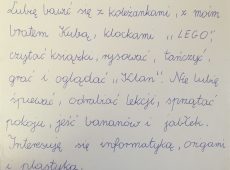 Lubię bawić się z koleżankami, z moim
bratem Kubą, klockami ,,LEGO"
czytać książki, rysować, tańczyć,
grać i oglądać ,,Klan". Nie lubię
śpiewać, odrabiać lekcji, sprzątać
pokoju, jeść bananów i jabłek.
Interesuję się informatyką, organi
i plastyką.